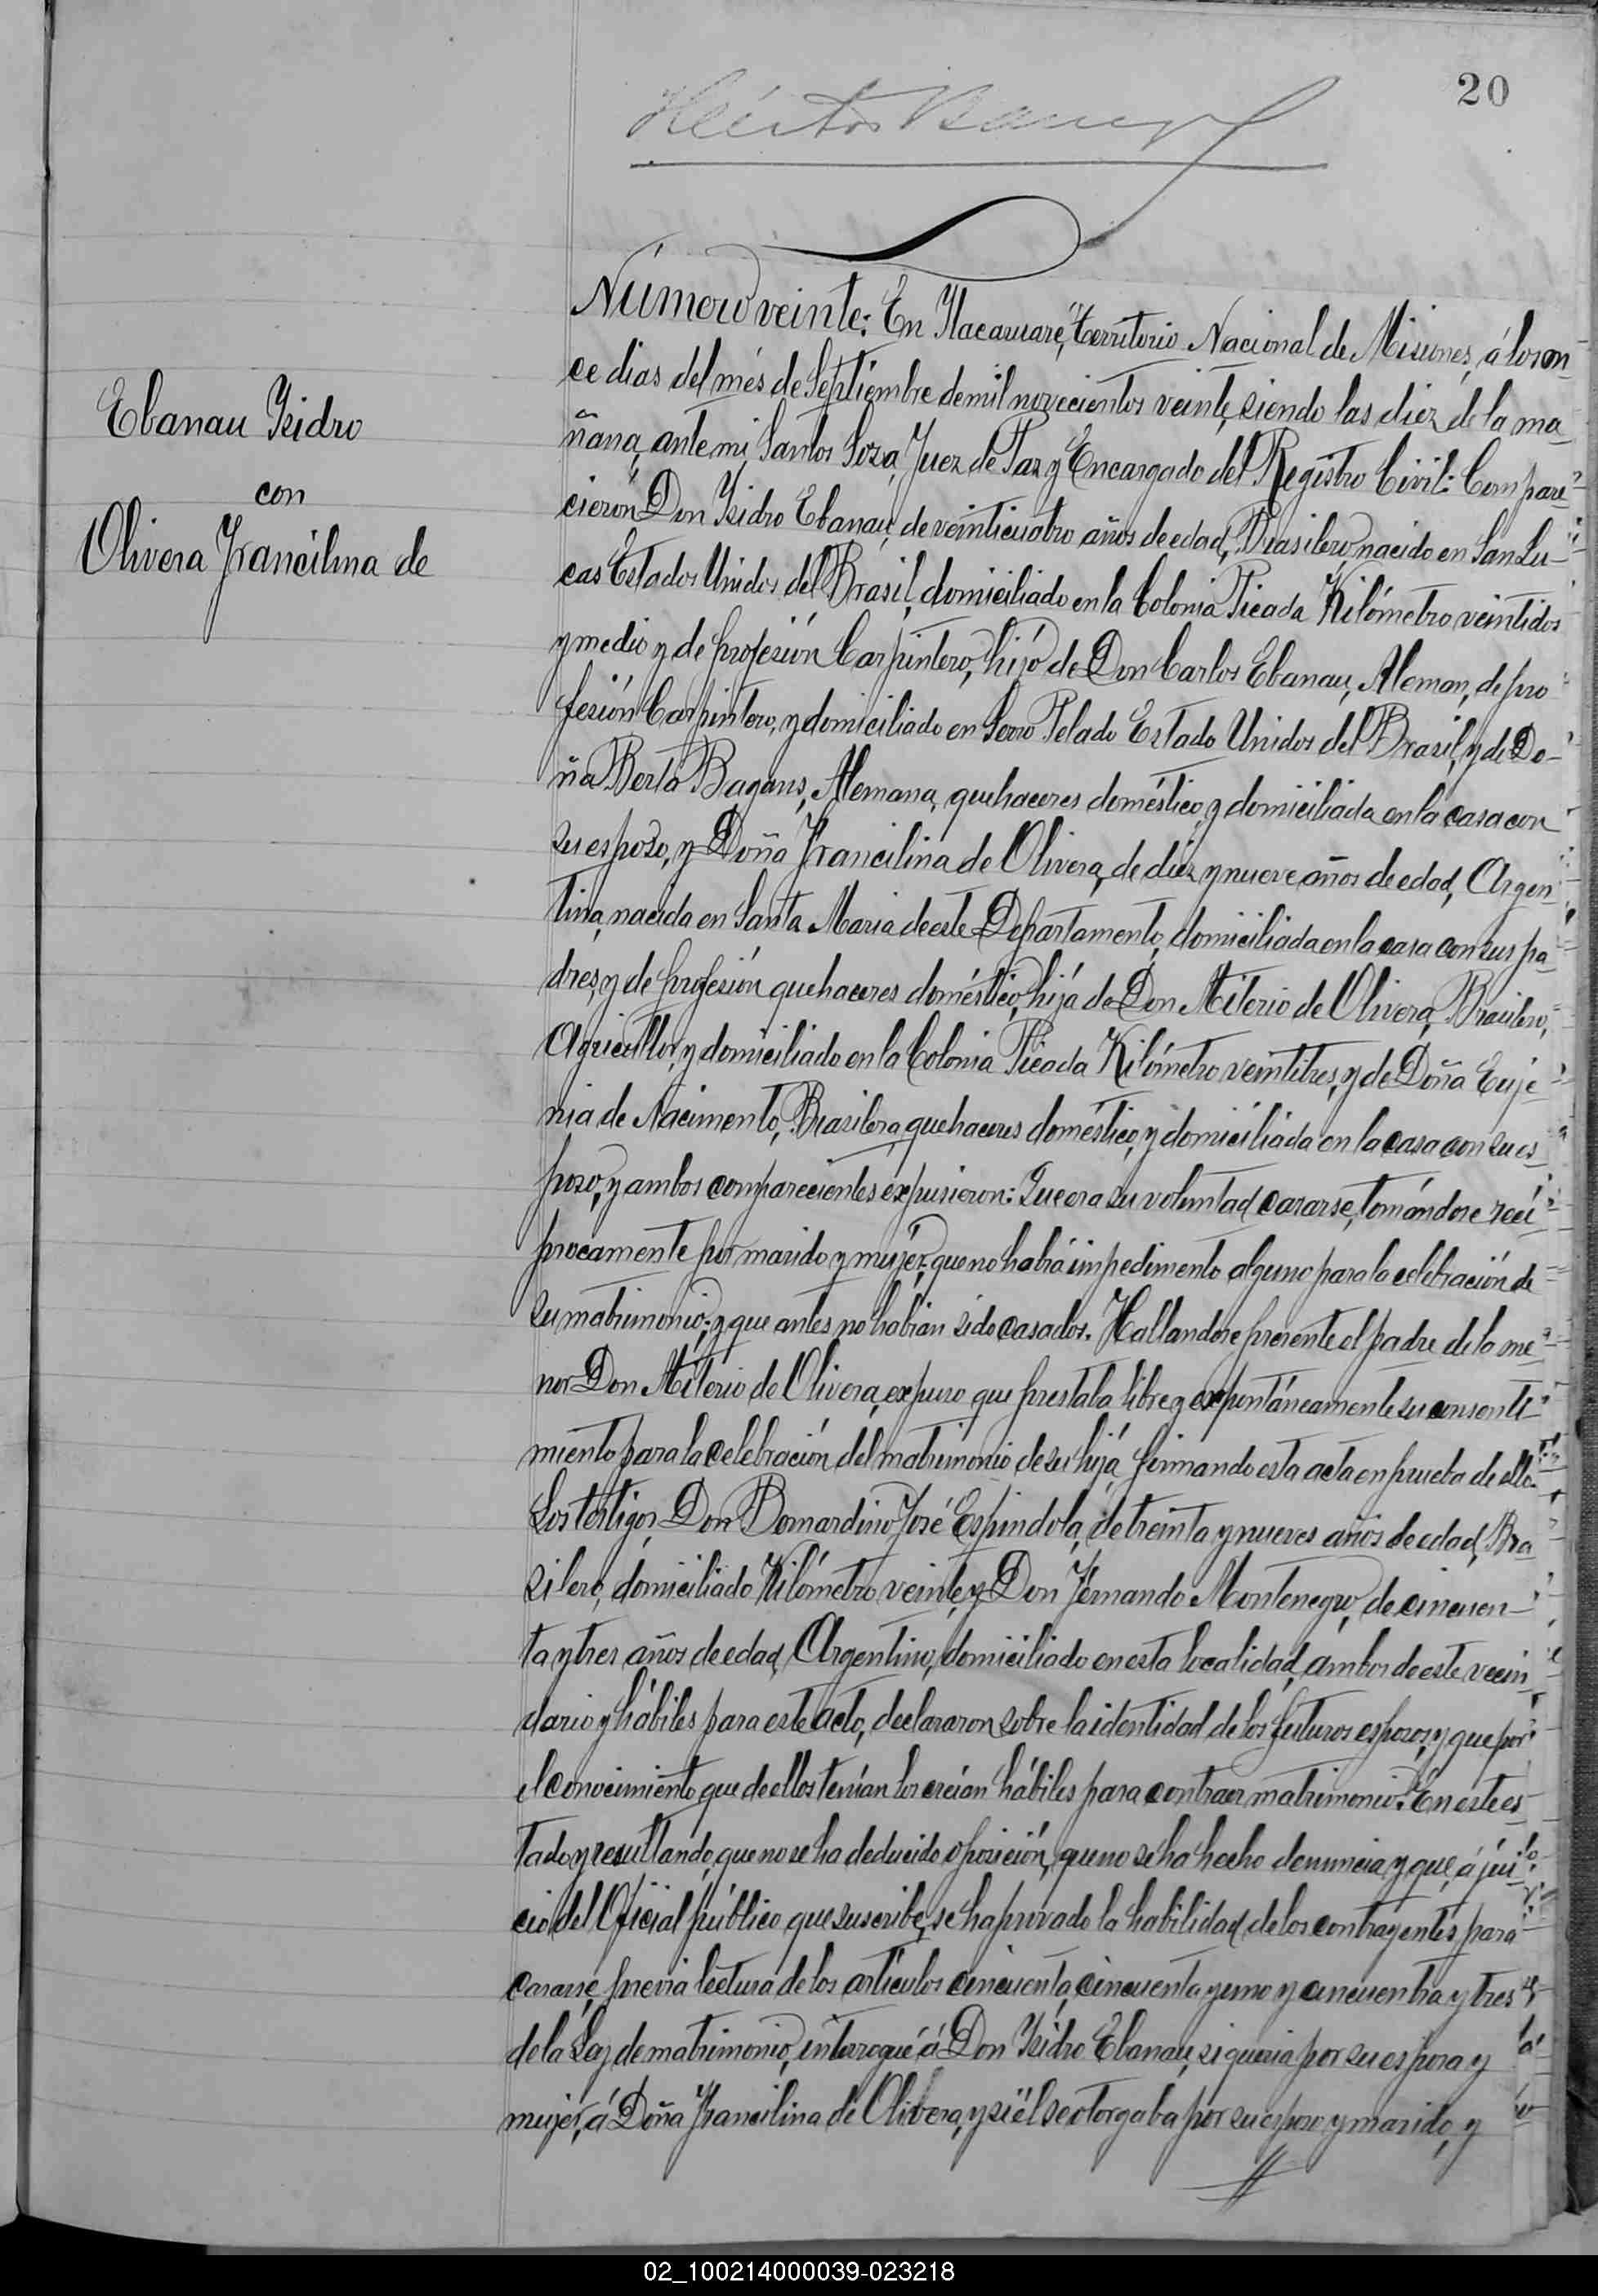 20
Héctor
Número veinte: En Itacaruaré, Territorio Nacional de Misiones, á los on-
ce dias del més de Septiembre de mil novecientos veinte, siendo las diez de la ma-
ñana, ante mi Santos Soza, Juez de Paz y Encargado del Registro Civil: Compare-
cierón Don Ysidro Ebanau, de veinticuatro años de edad, Brasilero, nacido en San Lu-
cas Estados Unidos del Brasil, domiciliado en la Colonia Picada Kilómetro veintidos
y medio y de profesión Carpintero, hijo de Don Carlos Ebanau, Aleman, de pro
fesión Carpintero, y domiciliado en Serro Pelado Estado Unidos del Brasil, y de Do-
ña Berta Bagans, Alemana, quehaceres doméstico, y domiciliada en la casa con
su esposo, y Doña Francilina de Olivera, de diez y nueve años de edad, Argen
tina, nacida en Santa Maria de este Departamento, domiciliada en la casa con sus pa-
dres, y de profesión quehaceres doméstico, hija de Don Miterio de Olivera, Brasilero,
Agricultor, y domiciliado en la Colonia Picada Kilómetro veintitres, y de Doña Euje-
nia de Nacimento, Brasilera, quehaceres doméstico, y domiciliada en la casa con su es-
poso, y ambos comparecientes expusieron: Que era su voluntad casarse, tomándose reci
procamente por marido y mujér, que no habia impedimento alguno para la celebración de
su matrimonio; y que antes no habian sido casados. Hallandose presente el padre de la me-
nor Don Miterio de Olivera, expuso que prestaba libre y expontáneamente su consenti-
miento para la celebración del matrimonio de su hija firmando esta acta en prueba de ello.
Los testigos Don Bernardino José Espindola, de treinta y nueves años de edad, Bra
silero, domiciliado Kilómetro veinte, y Don Fernando Montenegro, de cincuen-
ta y tres años de edad, Argentino, domiciliado en esta localidad, ambos de este vecin
dario y hábiles para este acto, declararon sobre la identidad de los futuros esposos, y que por
el conocimiento que de ellos tenían los creían hábiles para contraer matrimonio. En este es
tado y resultando, que no se ha deducido oposición, que no se ha hecho denuncia, y que, á jui
cio del Oficial público que suscribe, se ha provado la habilidad de los contrayentes para
casarse, previa lectura de los artículos cincuenta, cincuenta y uno y cincuentra y tres
de la Ley de matrimonio, interrogué á Don Ysidro Ebanau, si queria por su esposa y
mujer, á Doña Francilina de Olivera, y si él se otorgaba por su esposo y marido, y
Ebanau Ysidro
con
Olivera Francilina de
02_100214000039-023218